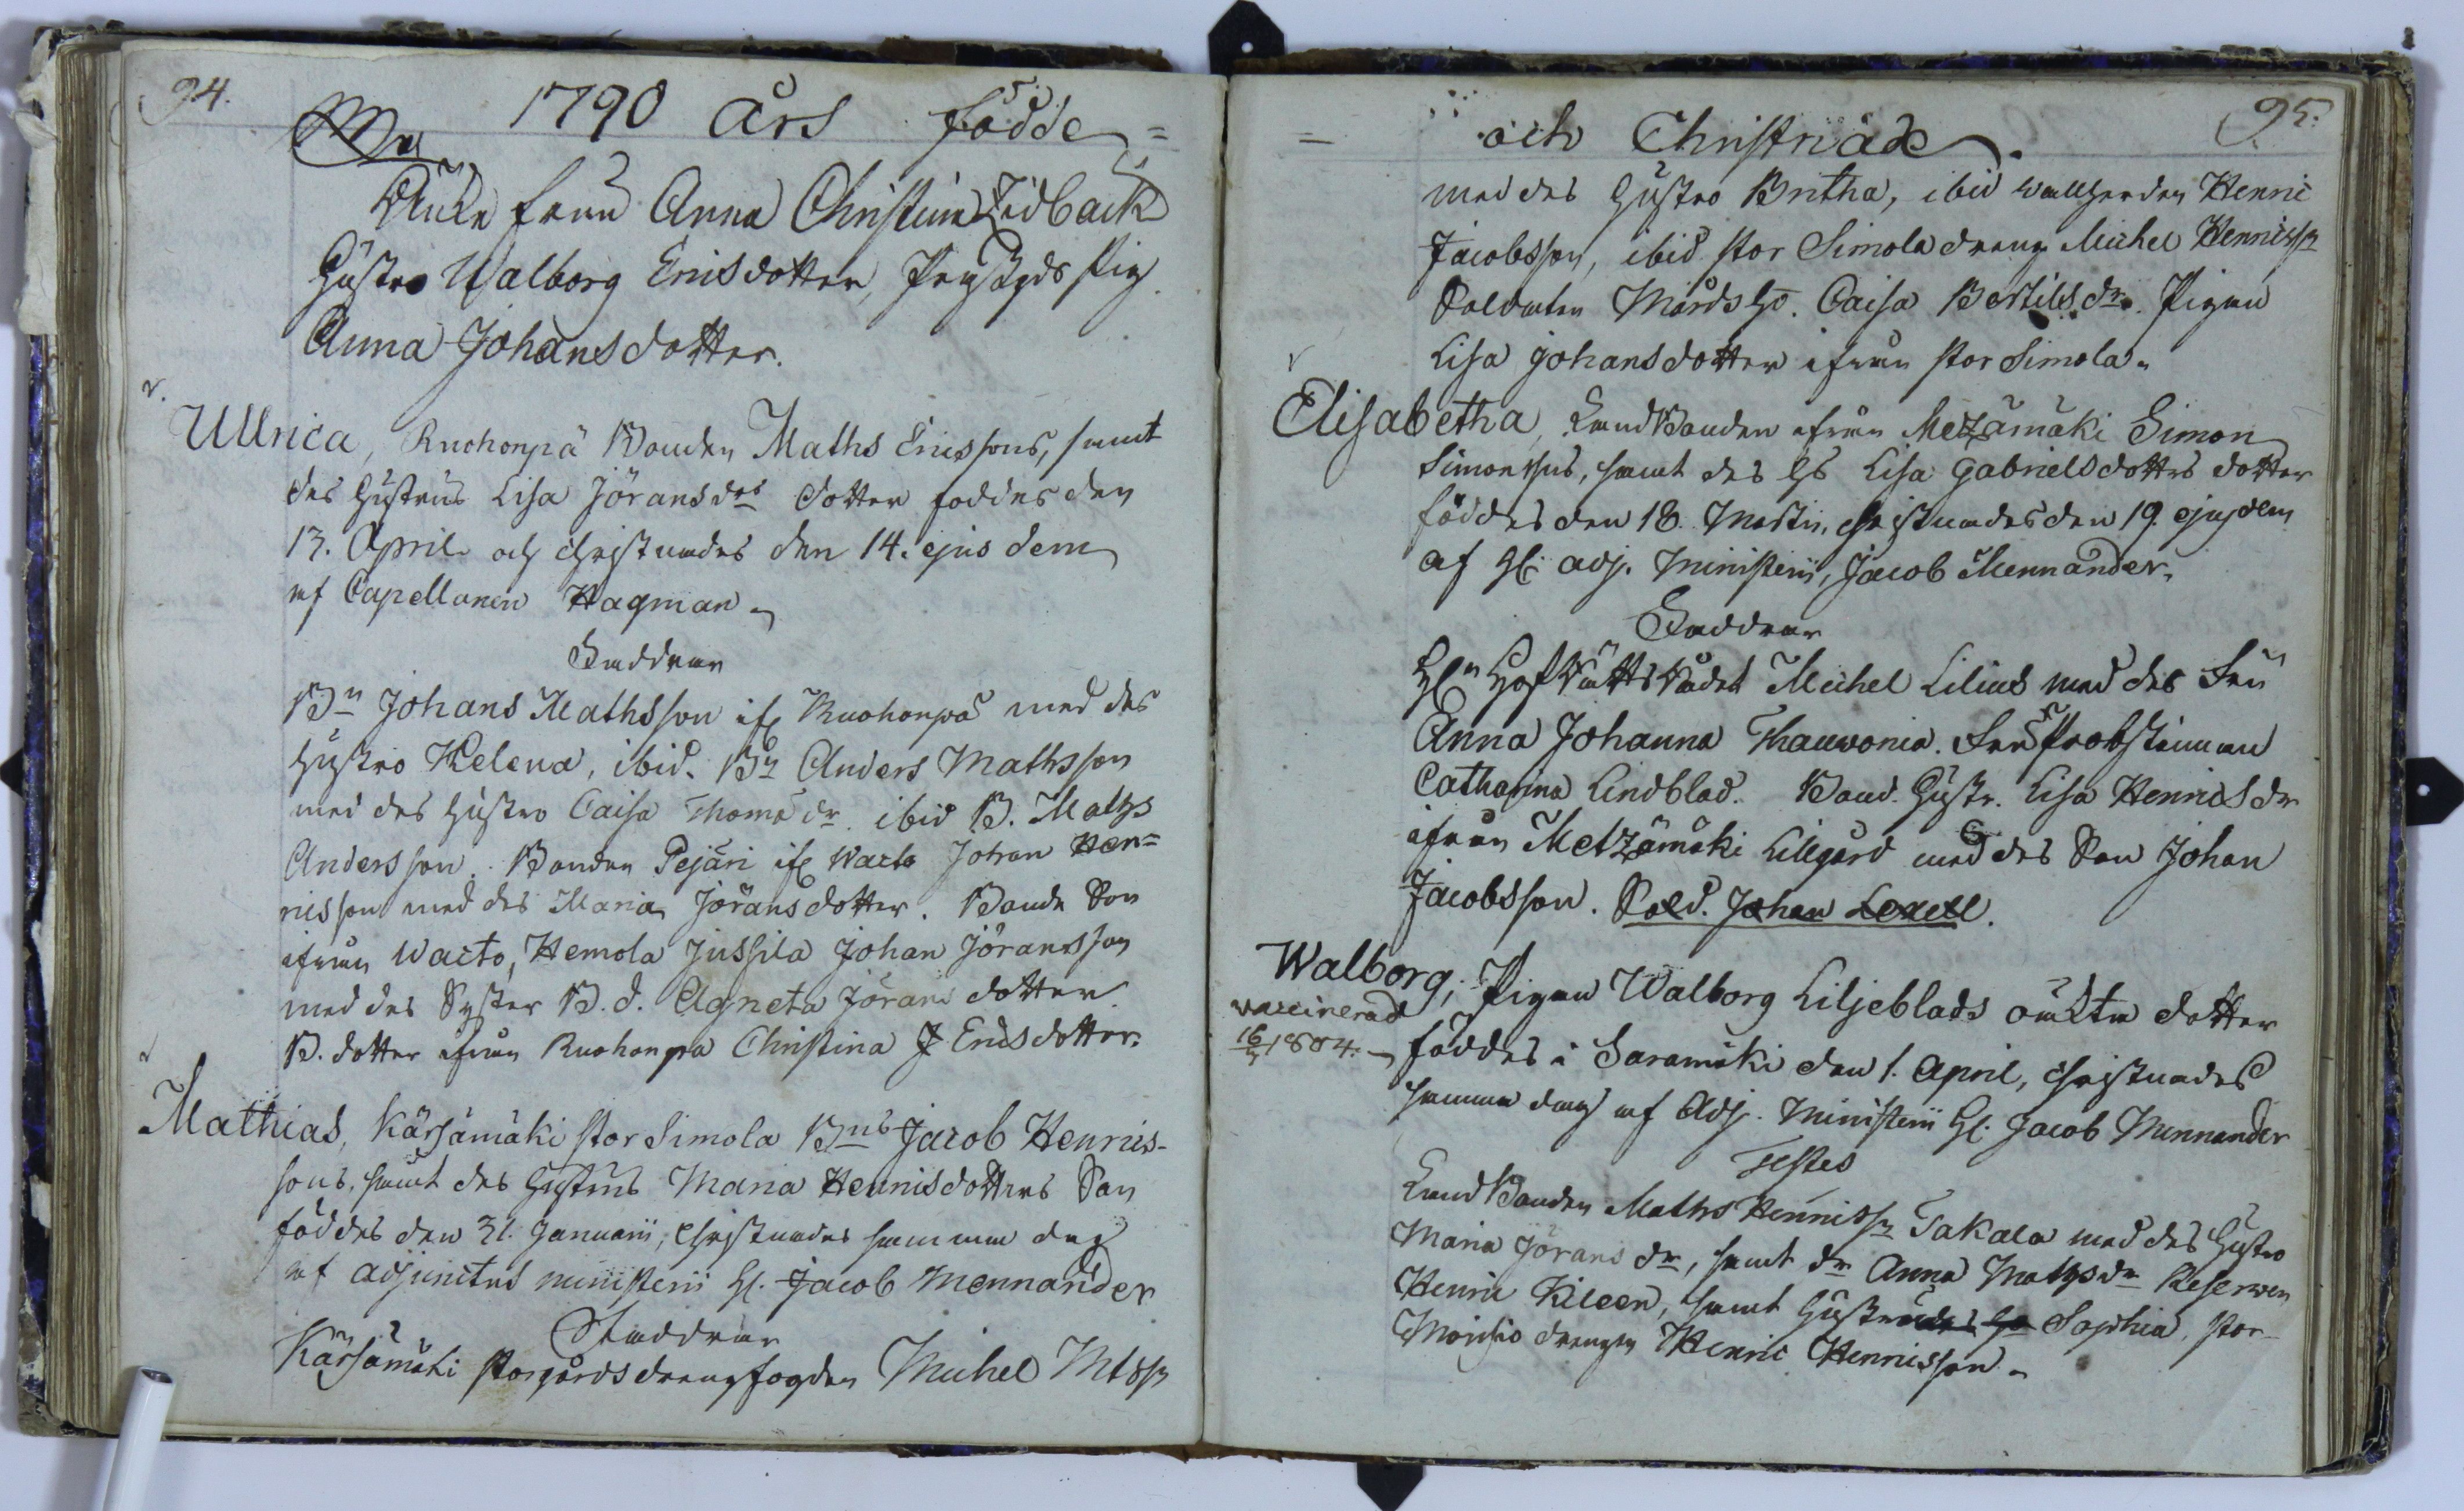 94.
1790 Års födde =
Enke fruu Anna Christina Zidbäck
Hustro Walborg Ericsdotter, Pig
Anna Johansdotter.
Ullrica, Ruohonpä Bonden Maths Ericssons, samt
des Hustrus Lisa Jöransdrs dotter föddes den
13. April och christnades den 14. ejusdem
af Capellanen Hagman
Faddrar
Bn Johans Mathsson if Ruohonpä med des
Hustro Helena, ibid. Bn Anders Mathsson
med des Hustro Caisa Thomædr. ibid B. Maths
Andersson. Bonden Pejäri if Wacto Johan Hen=
ricsson med des Maria Jöransdotter. Bonde Son
ifrån Wacto, Hemola Jussila Johan Jöransson
med des Syster B. d. Agneta Jörans dotter.
B. dotter ifrån Ruohonpä Christina Ericsdotter.
Mathias, Kärsämäki stor Simola Bns Jacob Henrics-
sons, samt des Hustrus Maria Henricsdotters Son
föddes den 31. Januarii, christnades samma dag
af adjunctus ministerii H. Jacob Mennander
Faddrar
Kärsämäki storgårds drengfogden Michel Mtssn
= och Christnade. 95.
med des Hustro Britha, ibid wallherden Henric
Jacobsson, ibid stor Simola dreng Michel Henricssn
Soldaten Mårds Ho. Caisa Bertilsdr. Pigan
Lisa Johansdotter ifrån stor Simola.
Elisabetha, LandBonden ifrån Metzämäki Simon
Simonssons, samt des Hs Lisa Gabrielsdotters dotter
föddes den 18. Martii, christnades den 19. ejusdem
af H. adj. Ministerii, Jacob Mennander.
Faddrar
Hn HofRätts Rådet Michel Lilius med des Fru
Anna Johanna Thauvonia. Fru Probstinnan
Catharina Lindblad. Bond. Hustr. Lisa Henricsdr
ifrån Metzämäki Lillgård med des Son Johan
Jacobsson. Sold. Johan Lexell.
Walborg, Pigan Walborg Liljeblads oäckta dotter
vaccinerad
föddes i Saramäki den 1. April, christnades
16 1804.
samma dag af Adj. Ministerii H. Jacob Mennander
Testes
LandBonden Maths Henricssn Takala med des Hustro
Maria Jöransdr, samt dr Anna Mathsdr Reserven
Henric Kileen, samt Hustro Sophia, stor
Moisio drengen Henric Henricsson.